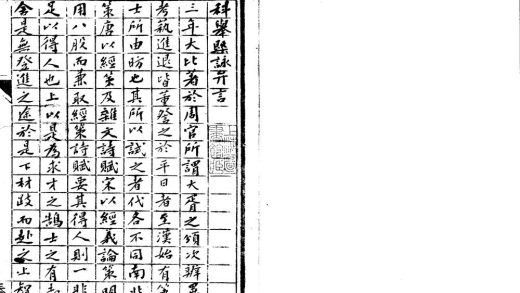 科舉槩詠弁言
三年大比著於周官所謂大胥之頒次辨異
考藝進退皆董登之於平日者至漢始有策
士所由昉也其所以試之者代各不同南北
策唐以經策及雜文詩賦宋以經義論策明
用八股而兼取經策詩賦要其得人則一非
足以得人也上以是為求才之鵠士之有志
舍是無登進之途於是下材跂而赴之上智